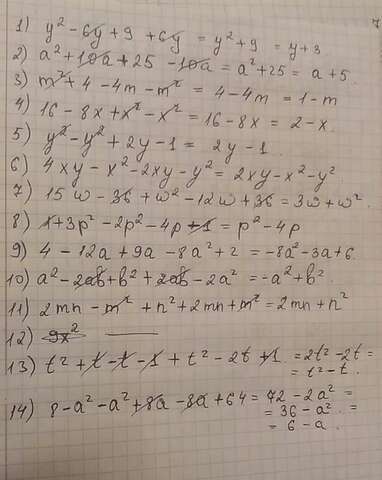 1) y² - 6y + 9 + 6y = y² + 9 = y + 3
2) a² + 10a + 25 - 10a = a² + 25 = a + 5.
3) m² + 4 - 4m - m² = 4 - 4m = 1 - m
4) 16 - 8x + x² - x² = 16 - 8x = 2 - x.
5) y² - y² + 2y - 1 = 2y - 1.
6) 4xy - x² - 2xy - y² = 2xy - x² - y²
7) 15w - 36 + w² - 12w + 36 = 3w + w²
8) 1 + 3p² - 2p² - 4p + 1 = p² - 4p
9) 4 - 12a + 9a - 8a² + 2 = -8a² - 3a + 6.
10) a² - 2ab + b² + 2ab - 2a² = -a² + b².
11) 2mn - m² + n² + 2mn + m² = 2mn + n²
12) 9x²
13) t² + t - t - 1 + t² - 2t + 1 = 2t² - 2t =
= t² - t.
14) 8 - a² - a² + 8a - 8a + 64 = 72 - 2a² =
= 36 - a² =
= 6 - a.